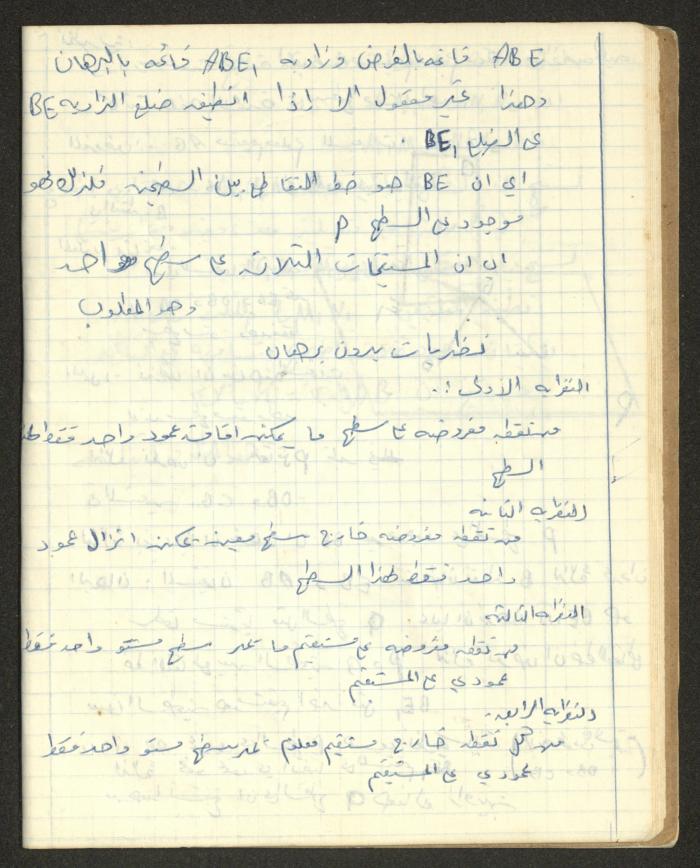 ABE قائمه بالفرض وزاويه ABE₁ قائمه بالبرهان
وهذا غير معقول الا اذا انطبق ضلع الزاويه BE
على الضلع BE₁ .
اي ان BE هو خط التقاطع بين السطحين فلذلك فهو
موجود على السطح P
اي ان المستقيمات الثلاثة على سطح واحد
وهو المطلوب
نظريات بدون برهان
النظرايه الاولى :.
من نقطه مفروضه على سطح ما يمكن اقامة عمود واحد فقط لهذا
السطح
النظرايه الثانيه
من نقطه مفروضه خارج سطح معين يمكن انزال عمود
واحد فقط لهذا السطح
النظرايه الثالثه
من نقطه مفروضه على مستقيم ما تمر سطح مستو واحد فقط
عمودي على المستقيم
النظرايه الرابعه .
من نقطه خارج مستقيم معلوم تمر سطح مستو واحد فقط
عمودي على المستقيم